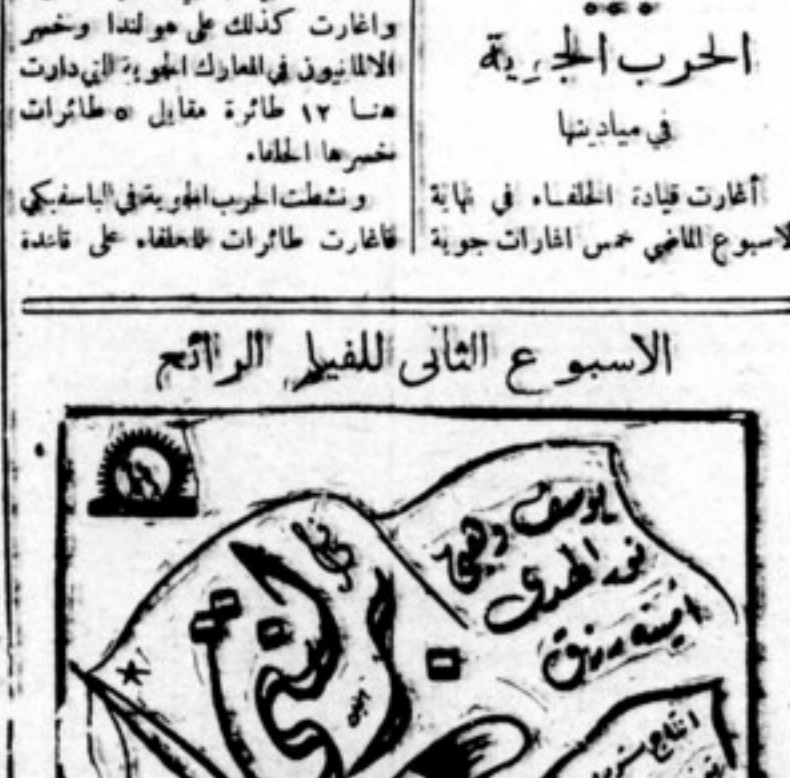 الحرب الجوية
في ميادينها
أغارت قيادة الحلفاء في نهاية
الاسبوع الماضي خمس اغارات جوية
واغارت كذلك على هولندا وخسر
الالمانيون في المعارك الجوية التي دارت
هنا ١٢ طائرة مقابل ٥ طائرات
خسرها الحلفاء
ونشطت الحرب الجوية في الباسفيكي
فاغارت طائرات للحلفاء على قاعدة
الاسبوع الثانى للفيلم الرائع
يوسف وهبي
نور الهدى
امينه رزق
انتاج